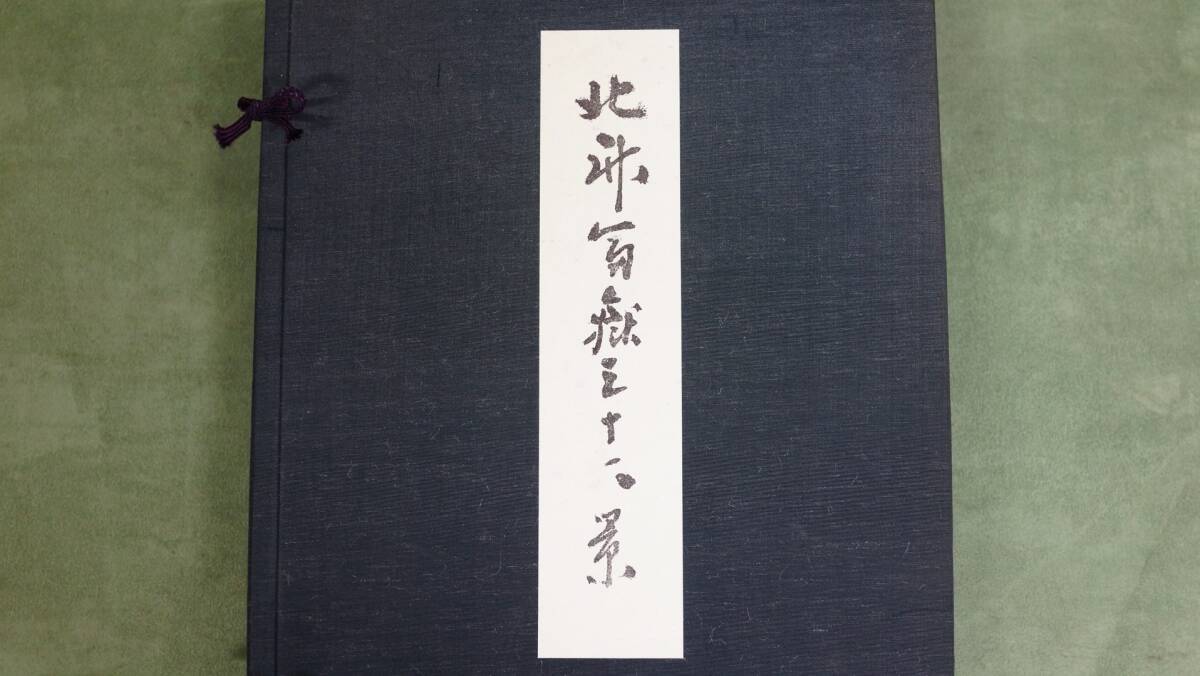 北斎富嶽三十六景